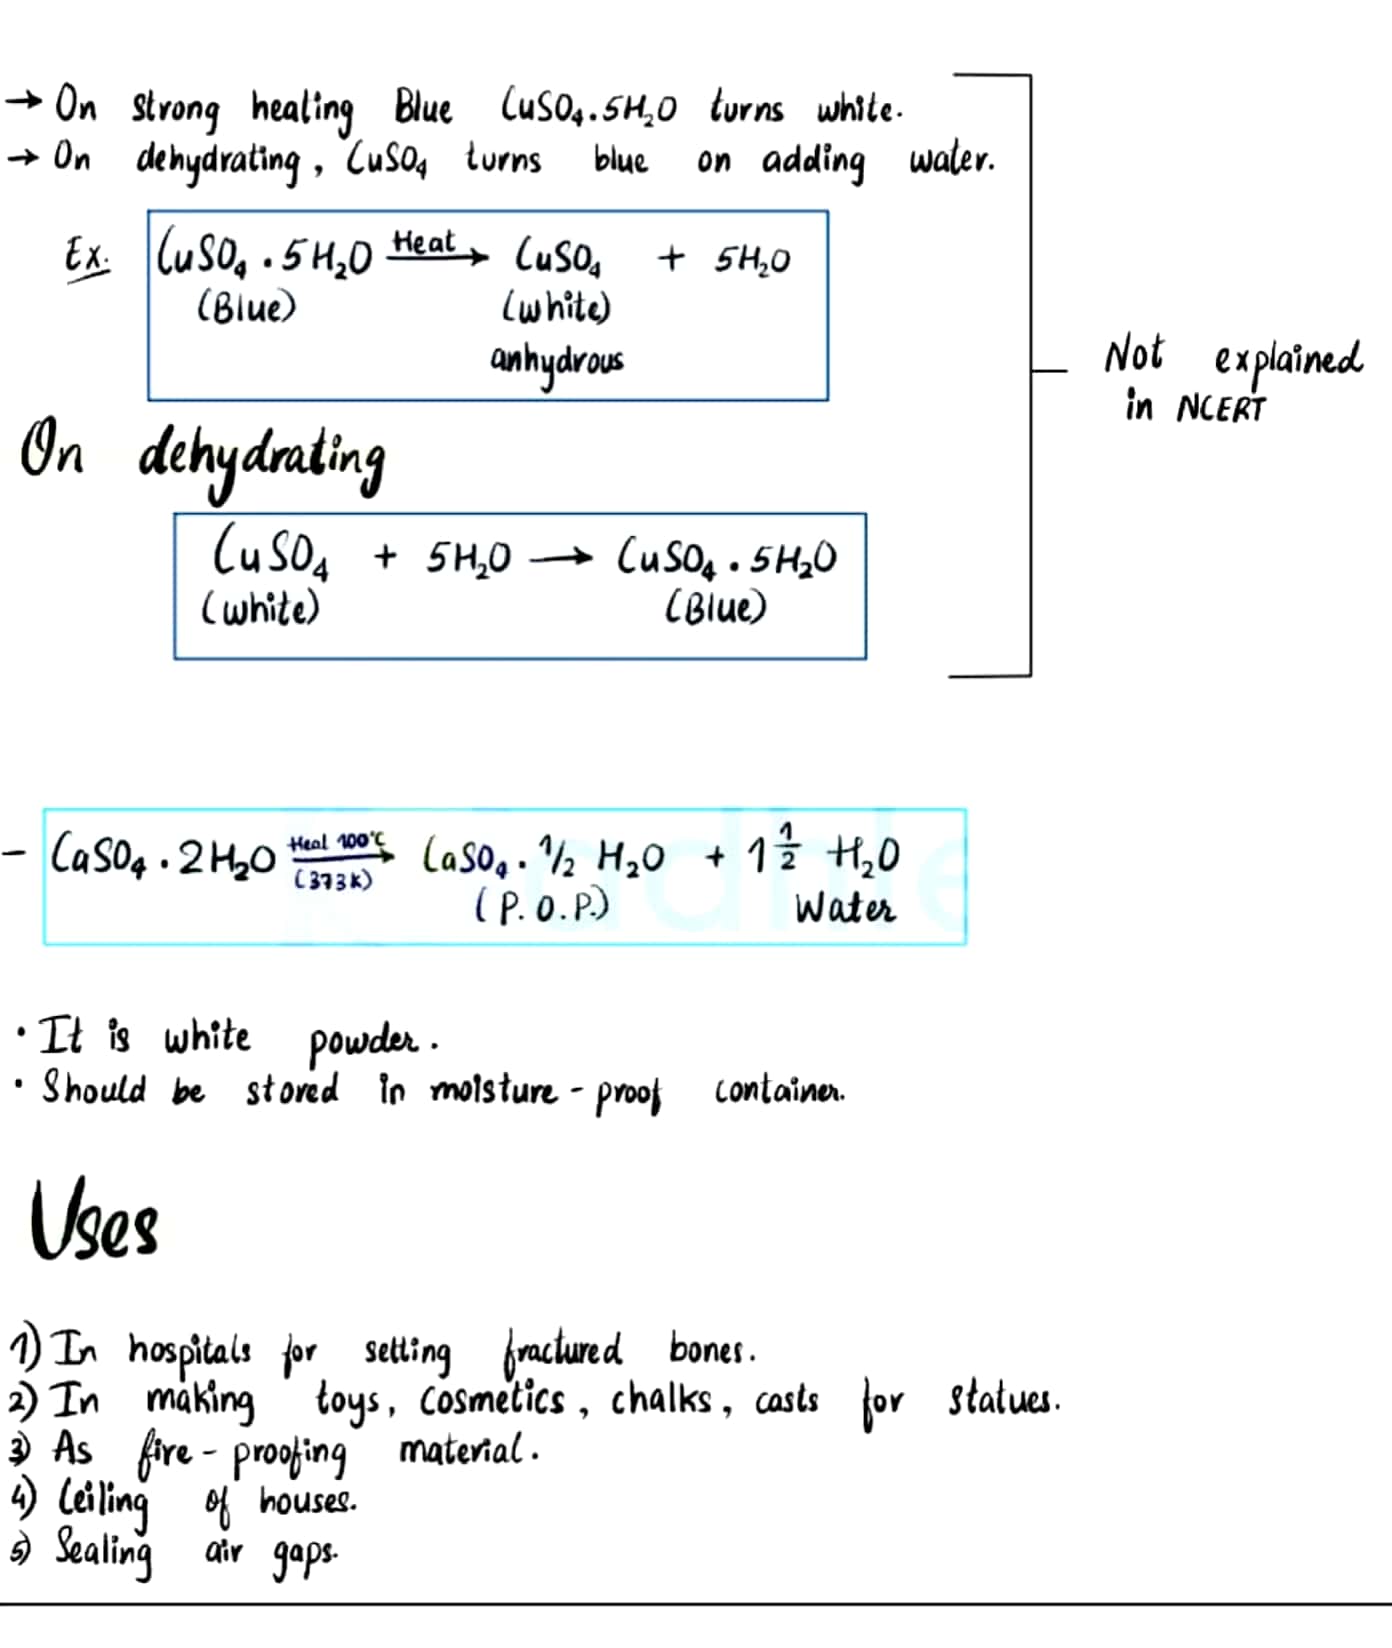 → On strong heating Blue CuSO₄.5H₂O turns white.
→ On dehydrating, CuSO₄ turns blue on adding water.
Ex. CuSO₄ . 5H₂O Heat → CuSO₄ + 5H₂O
(Blue) (white)
anhydrous
Not explained
in NCERT
On dehydrating
CuSO₄ + 5H₂O → CuSO₄ . 5H₂O
(white) (Blue)
- CaSO₄ . 2H₂O Heat 100°C (373K) → CaSO₄ . ½ H₂O + 1 ½ H₂O
(P.O.P.) Water
• It is white powder.
• Should be stored in moisture-proof container.
Uses
1) In hospitals for setting fractured bones.
2) In making toys, cosmetics, chalks, casts for statues.
3) As fire-proofing material.
4) Ceiling of houses.
5) Sealing air gaps.